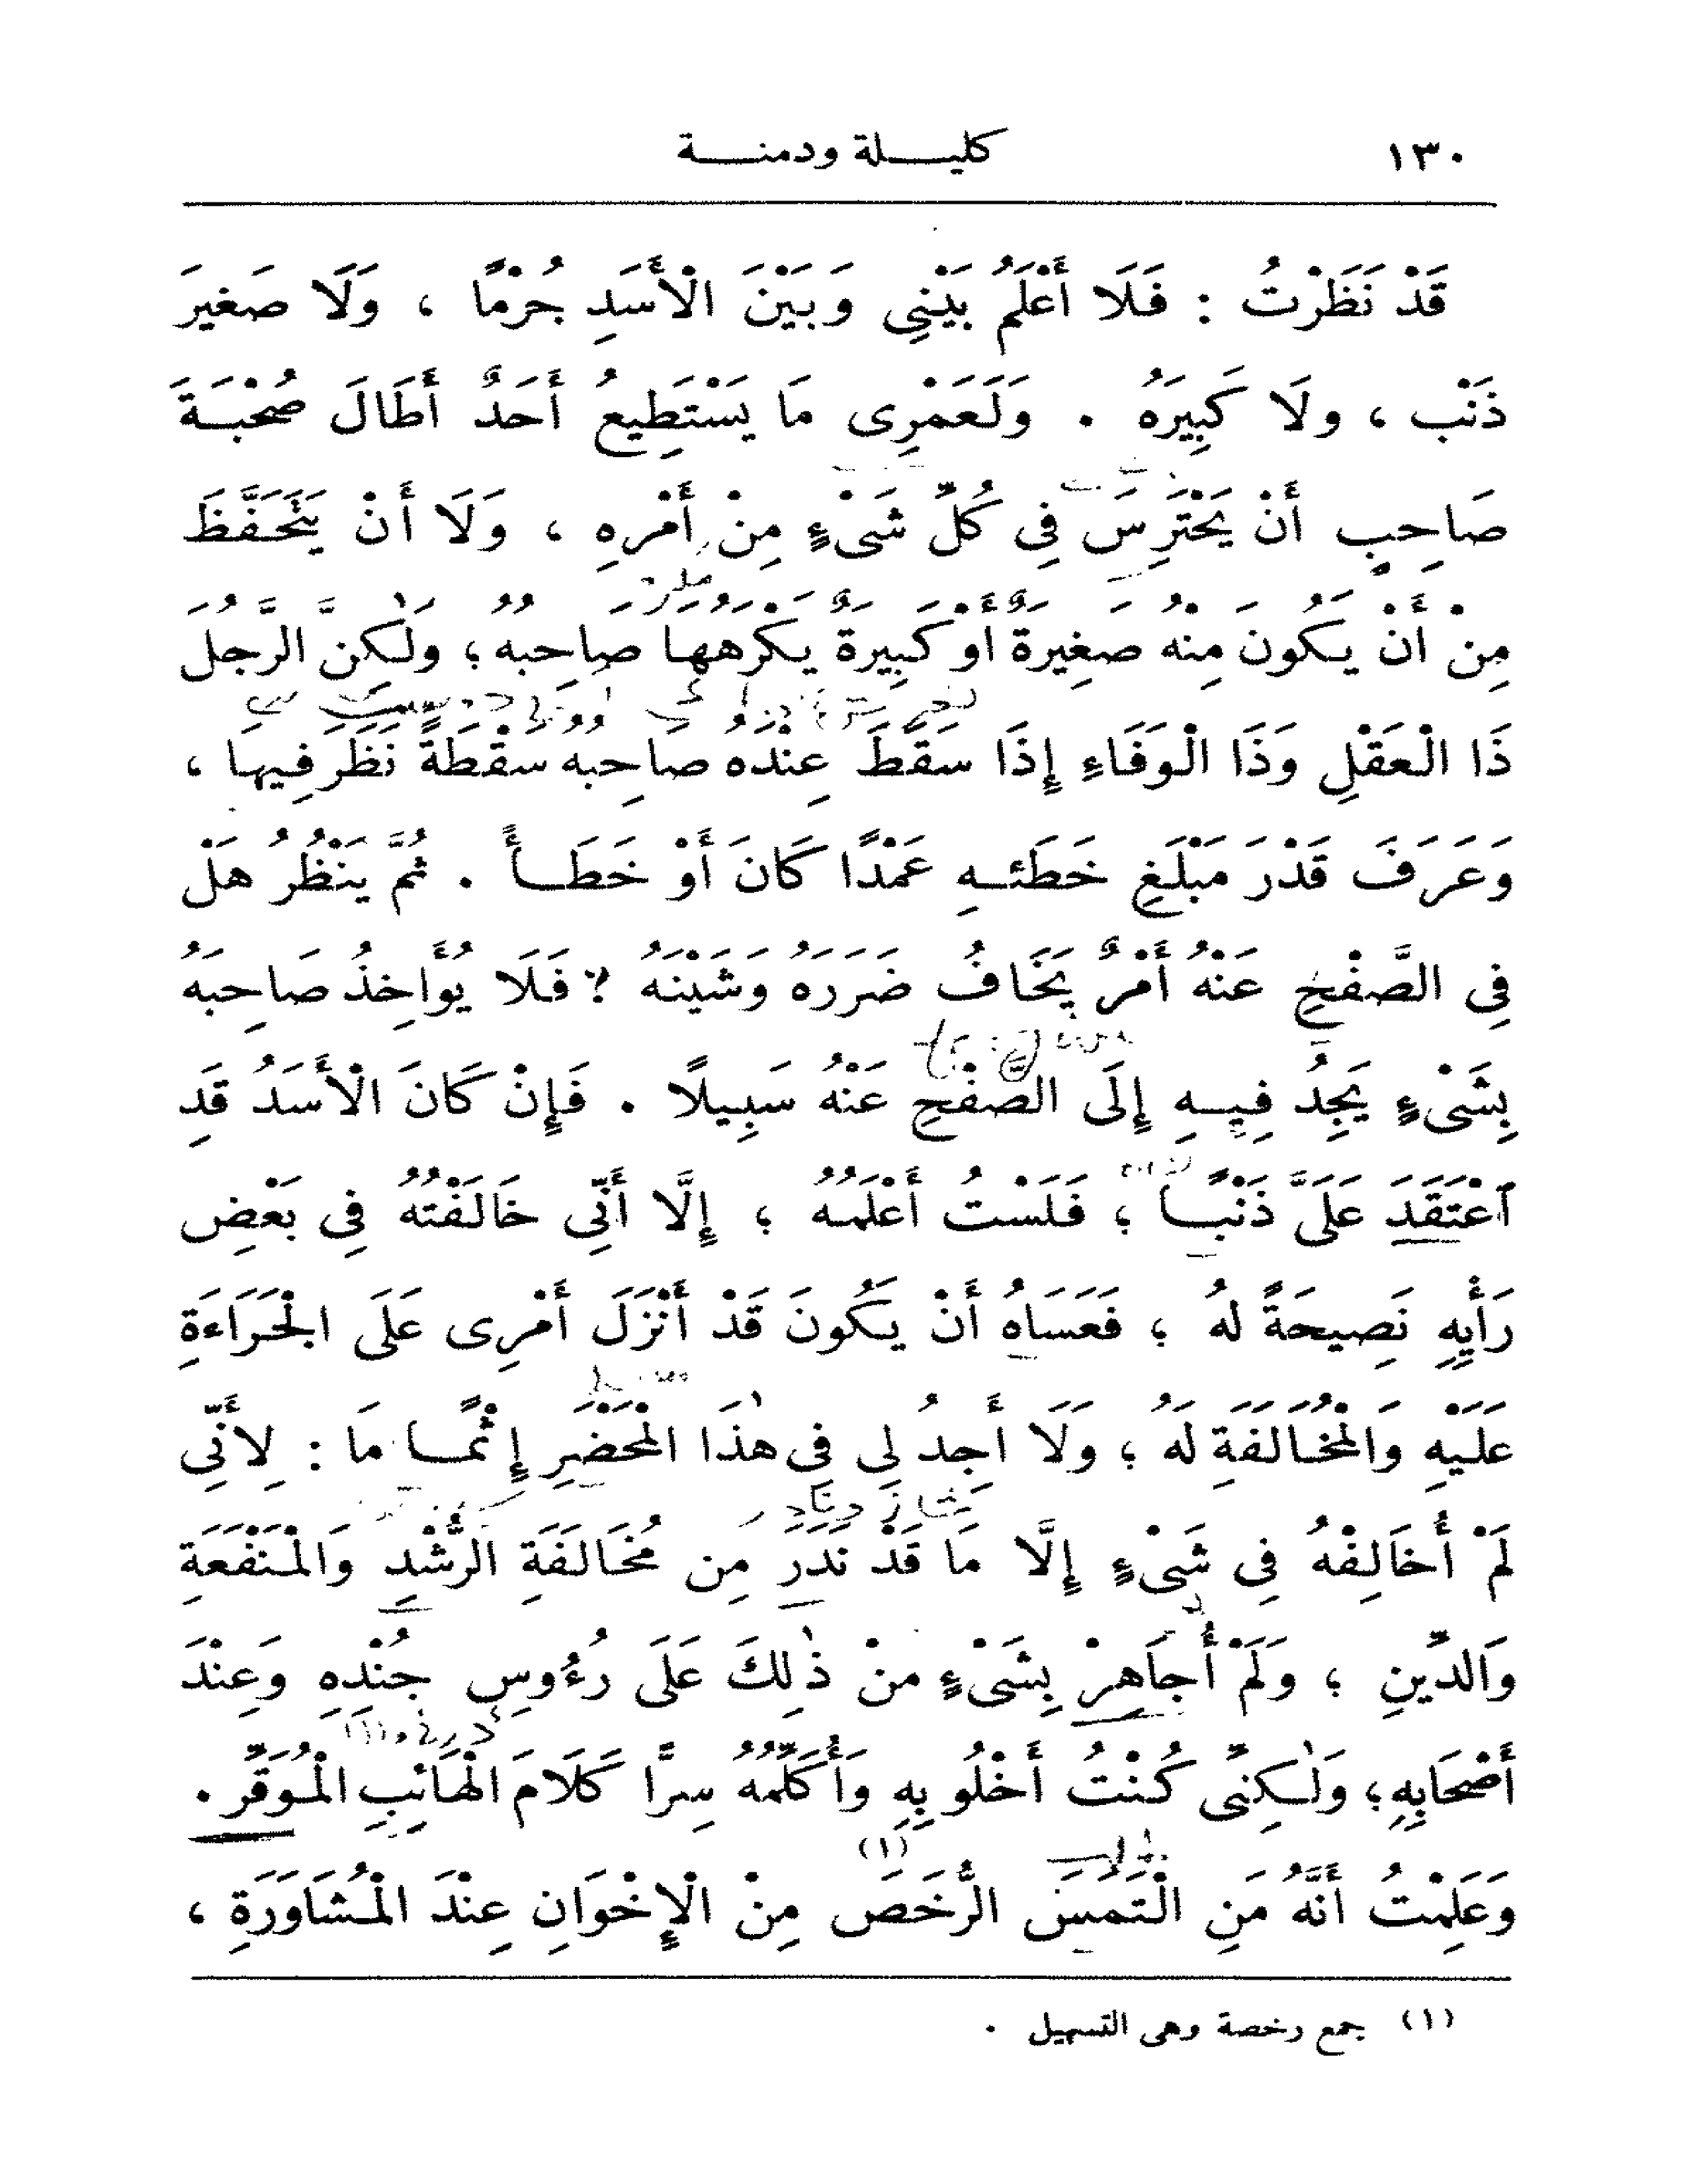 ١٣٠ كليـــلة ودمنـــة
قَدْ نَظَرْتُ : فَلَا أَعْلَمُ بَيْنِى وَبَيْنَ الْأَسَدِ جُرْمًا ، وَلَا صَغيرَ
ذَنْب ، ولَا كَبِيرَهُ . وَلَعَمْرِى مَا يَسْتَطِيعُ أَحَدٌ أَطَالَ صُحْبَــةَ
صَاحِبٍ أَنْ يَحْتَرِسَ فِى كُلِّ شَىْءٍ مِنْ أَمْرِهِ ، وَلَا أَنْ يَتَحَفَّظَ
مِنْ أَنْ يَكُونَ مِنْهُ صَغِيرَةٌ أَوْ كَبِيرَةٌ يَكْرَهُهَا صَاحِبُهُ ؛ وَلٰكِنَّ الرَّجُلَ
ذَا الْعَقْلِ وَذَا الْوَفَاءِ إِذَا سَقَطَ عِنْدَهُ صَاحِبُهُ سَقْطَةً نَظَرَ فِيهَا ،
وَعَرَفَ قَدْرَ مَبْلَغِ خَطَئــهِ عَمْدًا كَانَ أَوْ خَطَــأً . ثُمَّ يَنْظُرُ هَلْ
فِى الصَّفْحِ عَنْهُ أَمْرٌ يَخَافُ ضَرَرَهُ وَشَيْنَهُ ؟ فَلَا يُؤَاخِذُ صَاحِبَهُ
بِشَىْءٍ يَجِدُ فِيــهِ إِلَى الصَّفْحِ عَنْهُ سَبِيلًا . فَإِنْ كَانَ الْأَسَدُ قَدِ
اعْتَقَدَ عَلَىَّ ذَنْبًــا ؛ فَلَسْتُ أَعْلَمُهُ ؛ إِلَّا أَنِّى خَالَفْتُهُ فِى بَعْضِ
رَأْيِهِ نَصِيحَةً لهُ ؛ فَعَسَاهُ أَنْ يَكُونَ قَدْ أَنْزَلَ أَمْرِى عَلَى الجْرَاءَةِ
عَلَيْهِ وَالْمُخَالَفَةِ لَهُ ؛ وَلَا أَجِدُ لِى فِى هٰذَا الْمَحْضَرِ إِثْمًــا مَا : لِأَنِّى
لَمْ أُخَالِفْهُ فِى شَىْءٍ إِلَّا مَا قَدْ نَدَرَ مِن مُخَالَفَةِ الرُّشْدِ وَالْمَنْفَعَةِ
وَالدِّينِ ؛ وَلَمْ أُجَاهِرْ بِشَىْءٍ منْ ذٰلِكَ عَلَى رُءُوسِ جُنْدِهِ وَعِنْدَ
أَصْحَابِهِ ؛ وَلٰكِنِّى كُنْتُ أَخْلُو بِهِ وَأُكَلِّمُهُ سِرًّا كَلَامَ الْهَائِبِ الْمُوَقِّرِ .
وَعَلِمْتُ أَنَّهُ مَنِ الْتَمَسَ الرُّخَصَ (١) مِنْ الْإِخْوَانِ عِنْدَ الْمُشَاوَرَةِ ،
(١) جمع رخصة وهى التسهيل .